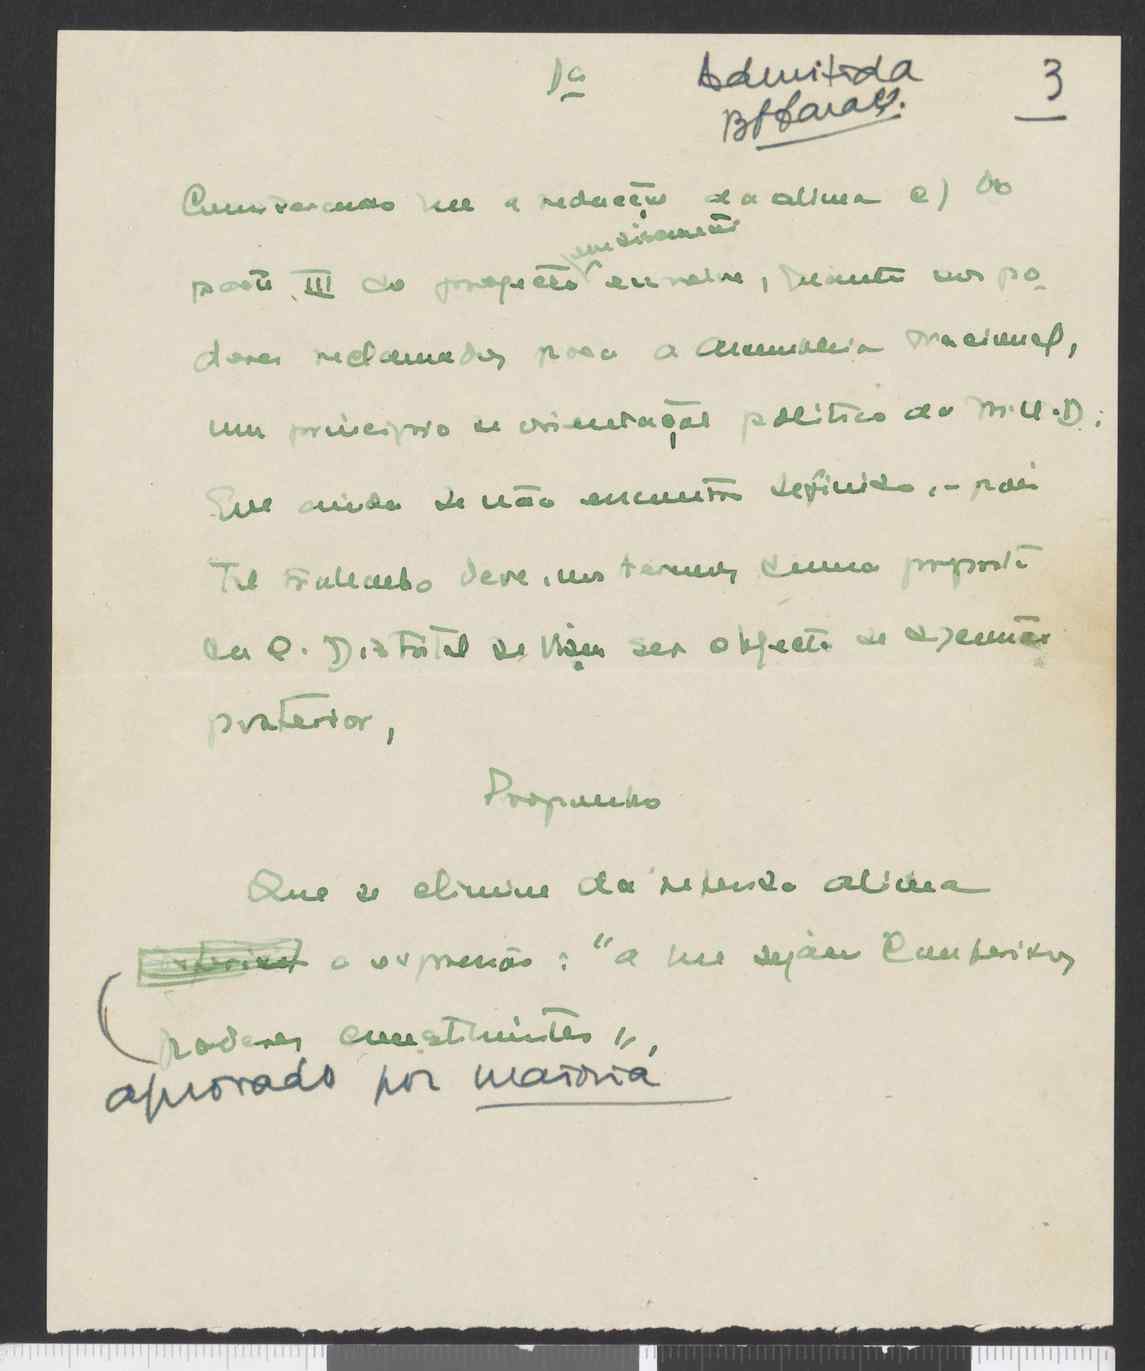 1ª
Admitida
3
Considerando que a redacção da alinea e) do
ponto III do projecto
envolve, quanto aos po-
deres reclamados para a Assembleia Nacional,
um principio de orientação politica do M.U.D.
que ainda se não encontra definido, - pois
tal trabalho deve, nos termos duma proposta
da C. Distrital de Viseu ser objecto de discussão
posterior,
Proponho
Que se elimine da referida alinea
a expressão: "a que sejam conferidos
poderes constituintes",
aprovado por maioria